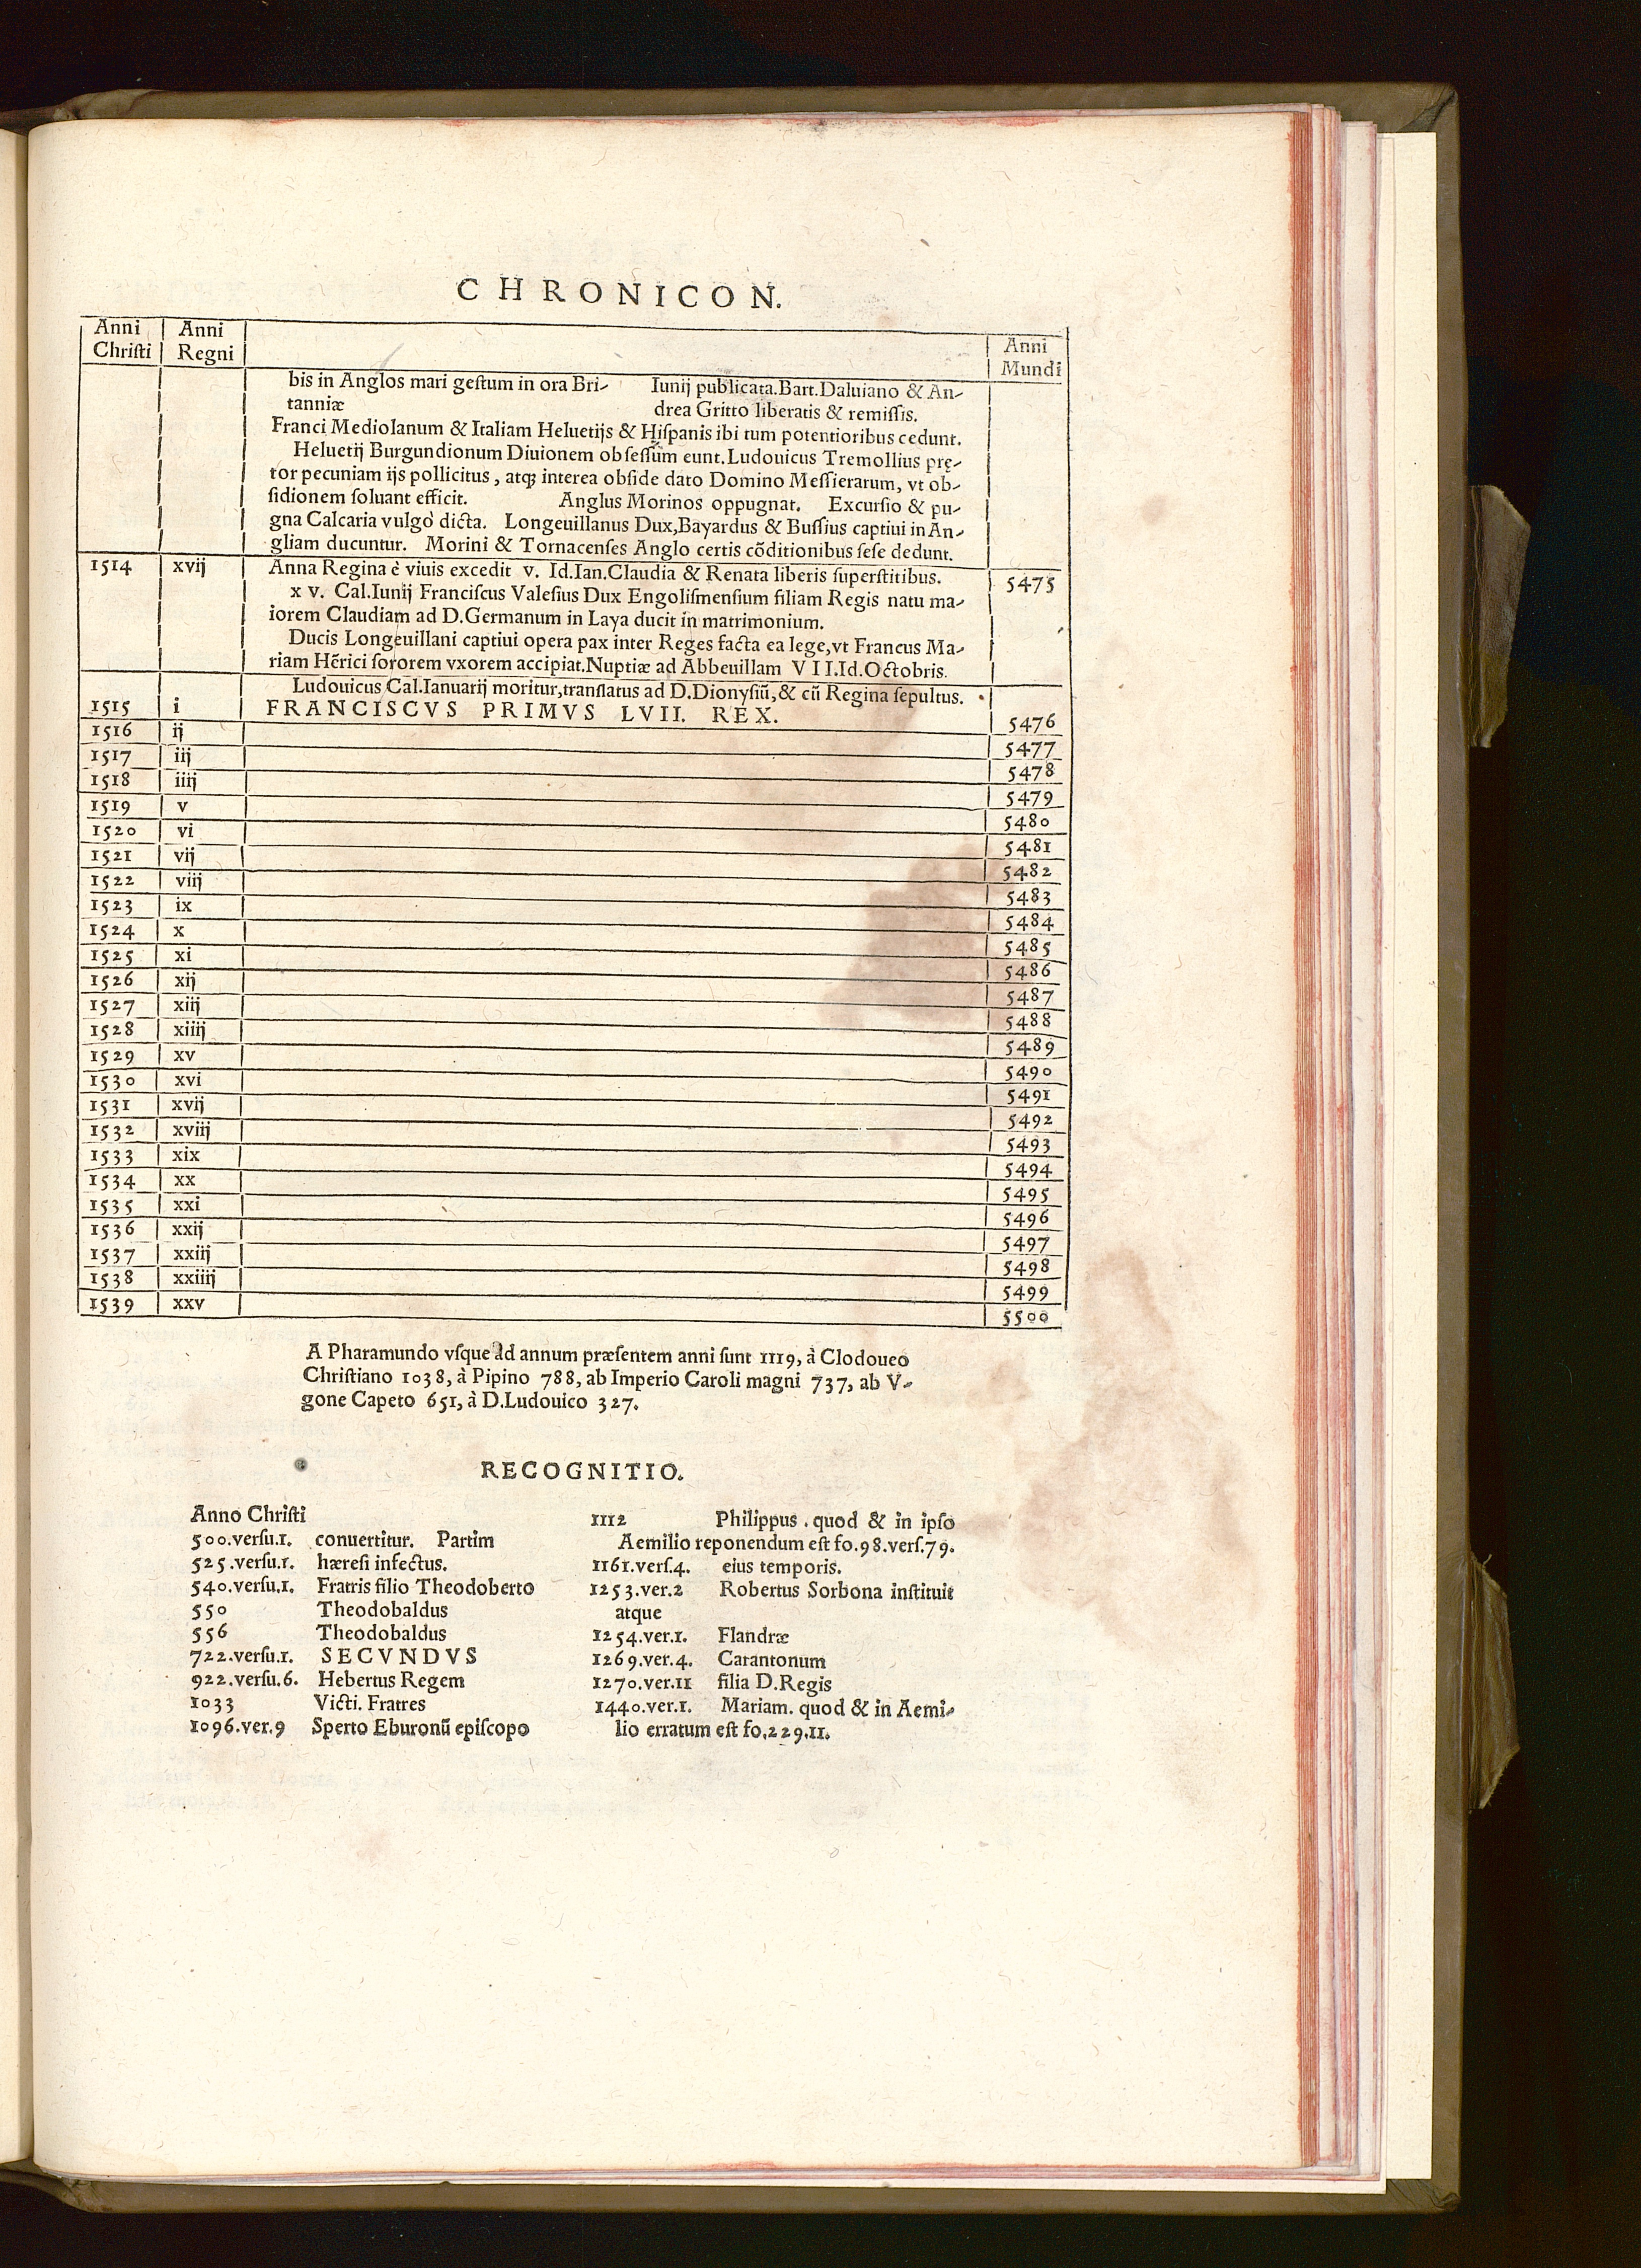 CHRONICON.
Anni Christi | Anni Regni | | Anni Mundi
bis in Anglos mari gestum in ora Bri- Iunij publicata.Bart.Daluiano & An-
tanniæ drea Gritto liberatis & remissis.
Franci Mediolanum & Italiam Heluetijs & Hispanis ibi tum potentioribus cedunt.
Heluetij Burgundionum Diuionem obsessum eunt.Ludouicus Tremollius prę-
tor pecuniam ijs pollicitus, atq; interea obside dato Domino Messierarum, vt ob-
sidionem soluant efficit. Anglus Morinos oppugnat. Excursio & pu-
gna Calcaria vulgò dicta. Longeuillanus Dux,Bayardus & Bussius captiui in An-
gliam ducuntur. Morini & Tornacenses Anglo certis cōditionibus sese dedunt.
1514 xvij Anna Regina è viuis excedit v. Id.Ian.Claudia & Renata liberis superstitibus. 5475
x v. Cal.Iunij Franciscus Valesius Dux Engolismensium filiam Regis natu ma-
iorem Claudiam ad D.Germanum in Laya ducit in matrimonium.
Ducis Longeuillani captiui opera pax inter Reges facta ea lege,vt Francus Ma-
riam Hērici sororem vxorem accipiat.Nuptiæ ad Abbeuillam VII.Id.Octobris.
Ludouicus Cal.Ianuarij moritur,translatus ad D.Dionysiū,& cū Regina sepultus.
1515 i FRANCISCVS PRIMVS LVII. REX. 5476
1516 ij 5477
1517 iij 5478
1518 iiij 5479
1519 v 5480
1520 vi 5481
1521 vij 5482
1522 viij 5483
1523 ix 5484
1524 x 5485
1525 xi 5486
1526 xij 5487
1527 xiij 5488
1528 xiiij 5489
1529 xv 5490
1530 xvi 5491
1531 xvij 5492
1532 xviij 5493
1533 xix 5494
1534 xx 5495
1535 xxi 5496
1536 xxij 5497
1537 xxiij 5498
1538 xxiiij 5499
1539 xxv 5500
A Pharamundo vsque ad annum præsentem anni sunt 1119, à Clodoueo
Christiano 1038, à Pipino 788, ab Imperio Caroli magni 737, ab V-
gone Capeto 651, à D.Ludouico 327.
RECOGNITIO.
Anno Christi
500.versu.1. conuertitur. Partim
525.versu.1. hæresi infectus.
540.versu.1. Fratris filio Theodoberto
550 Theodobaldus
556 Theodobaldus
722.versu.1. SECVNDVS
922.versu.6. Hebertus Regem
1033 Victi. Fratres
1096.ver.9 Sperto Eburonū episcopo
1112 Philippus . quod & in ipso
Aemilio reponendum est fo.98.vers.79.
1161.vers.4. eius temporis.
1253.ver.2 Robertus Sorbona instituit
atque
1254.ver.1. Flandræ
1269.ver.4. Carantonum
1270.ver.11 filia D.Regis
1440.ver.1. Mariam. quod & in Aemi-
lio erratum est fo.229.11.